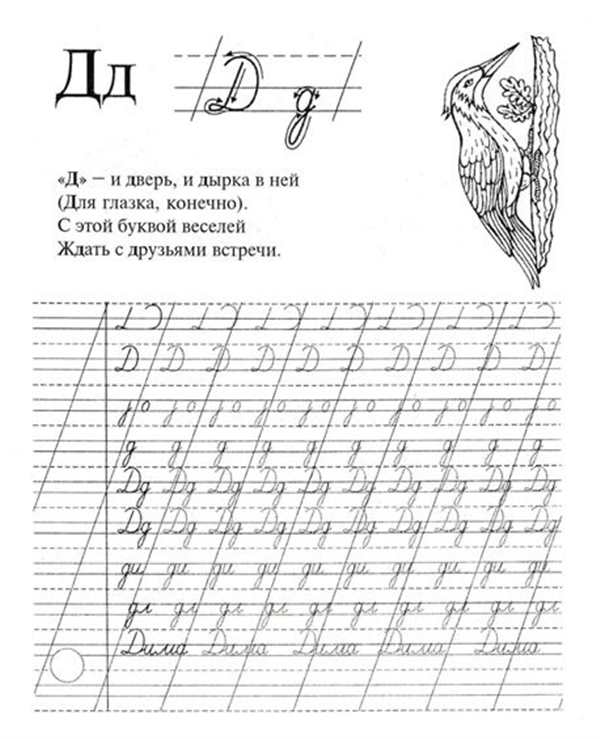 Дд
Д д
«Д» – и дверь, и дырка в ней
(Для глазка, конечно).
С этой буквой веселей
Ждать с друзьями встречи.
Д Д Д Д Д Д Д Д Д Д
д д д д д д д д д д
Дд Дд Дд Дд Дд Дд Дд Дд Дд Дд
Дд Дд Дд Дд Дд Дд Дд Дд Дд Дд
ди ди ди ди ди ди ди ди ди ди
дл дл дл дл дл дл дл дл дл дл
Дима Дима Дима Дима Дима